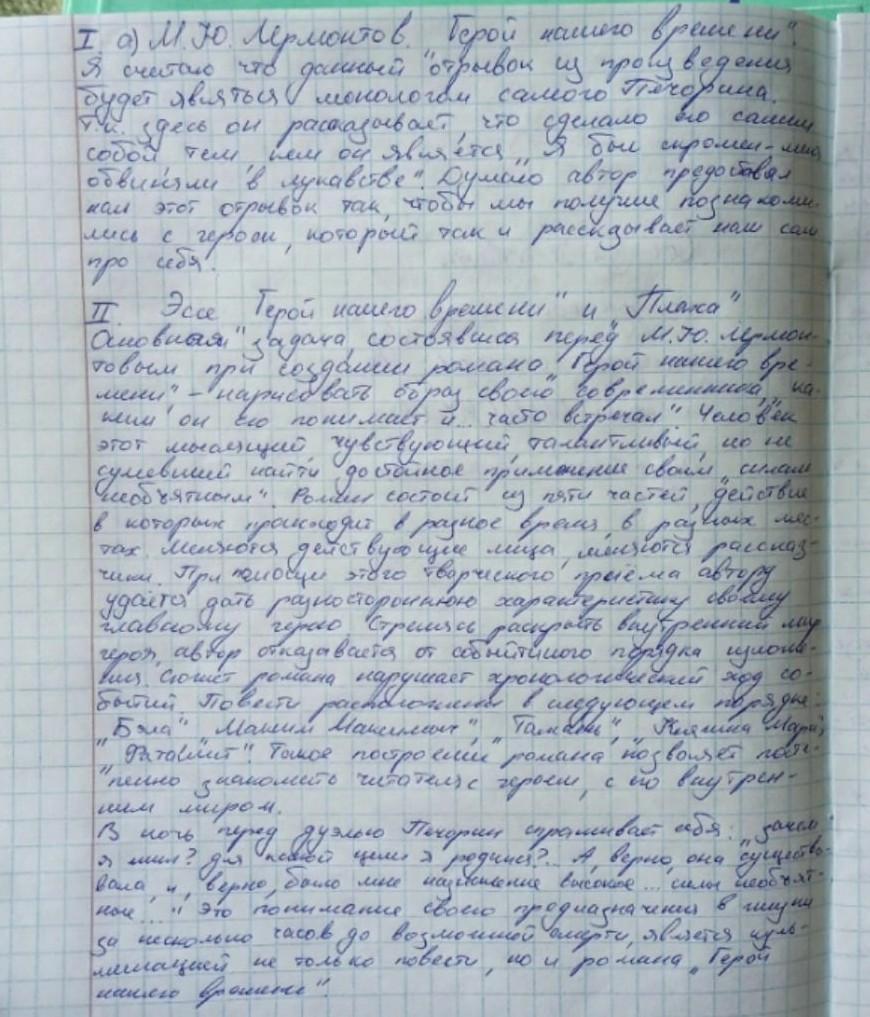 I. а) М.Ю. Лермонтов. "Герой нашего времени".
Я считаю что данный отрывок из произведения
будет являться монологом самого Печорина.
Т.к. здесь он рассказывает, что сделало его самим
собой, тем, кем он является "Я был скромен - меня
обвиняли в лукавстве". Думаю автор предоставил
нам этот отрывок так, чтобы мы получше познакоми-
лись с героем, который так и рассказывает нам сам
про себя.
II. Эссе "Герой нашего времени" и "Плаха"
Основная задача, состоявшая перед М.Ю. Лермон-
товым при создании романа "Герой нашего вре-
мени" - нарисовать образ своего современника, "ка-
ким он его понимает и... часто встречал". Человек
этот мыслящий, чувствующий, талантливый, но не
сумевший найти достойное применение своим "силам
необъятным". Роман состоит из пяти частей, действие
в которых происходит в разное время, в разных мес-
тах. Меняются действующие лица, меняются рассказ-
чики. При помощи этого творческого приёма автору
удаётся дать разностороннюю характеристику своему
главному герою. Стремясь раскрыть внутренний мир
героя, автор отказывается от событийного порядка изложе-
ния. Сюжет романа нарушает хронологический ход со-
бытий. Повести расположены в следующем порядке:
"Бэла", "Максим Максимыч", "Тамань", "Княжна Мари",
"Фаталист". Такое построение романа позволяет посте-
пенно знакомить читателя с героем, с его внутрен-
ним миром.
В ночь перед дуэлью Печорин спрашивает себя: "зачем
я жил? для какой цели я родился?.. А, верно, она существо-
вала, и, верно, было мне назначение высокое... силы необъят-
ные..." Это понимание своего предназначения в жизни
за несколько часов до возможной смерти, является куль-
минацией не только повести, но и романа "Герой
нашего времени".